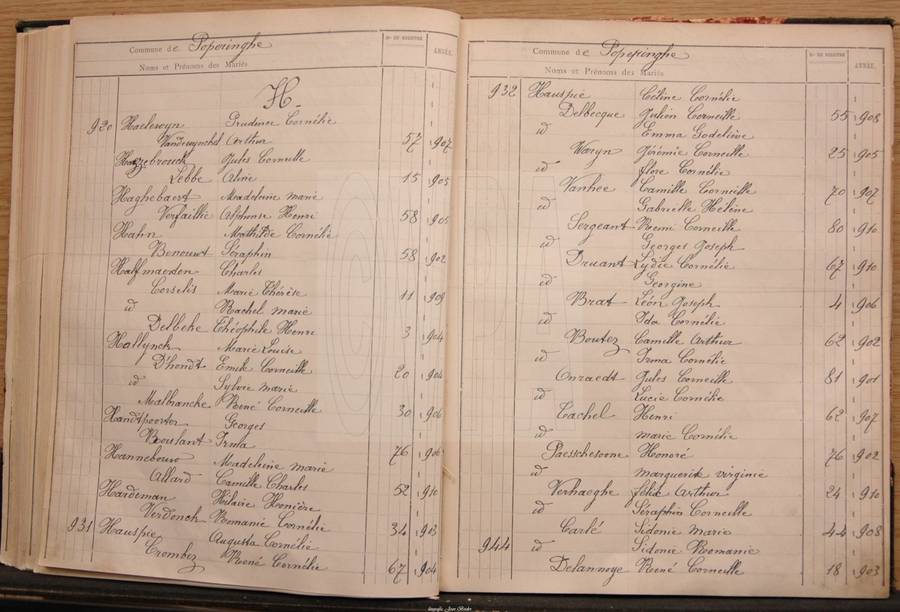 Commune de Poperinghe
Nos DU REGISTRE
ANNÉE.
Noms et Prénoms des Mariés
H.
920 Haelewyn Prudence Cornélie
Vanderwynckel Arthur 57 1907
Hazebrouck Jules Corneille
Lebbe Aline 15 1905
Haghebaert Madeleine Marie
Verfaillie Alphonse Henri 58 1905
Hahn Mathilde Cornélie
Benouwt Séraphin 58 1902
Halfmaerten Charles
Corselis Marie Thérèse 11 1909
id Rachel Marie
Delbeke Théophile Henri 3 1904
Hallynck Marie Louise
D'hondt Emile Corneille 20 1904
id Sylvie Marie
Malbranche René Corneille 30 1906
Handtpoorter Georges
Boulant Irma 76 1906
Hannebouw Madeleine Marie
Allard Camille Charles 52 1910
Hardeman Hilaire Honière
Verdonck Romanie Cornélie 34 1903
931 Hauspie Augusta Cornélie
Crombez René Cornélie 67 1904
Commune de Poperinghe
Nos DU REGISTRE
ANNÉE.
Noms et Prénoms des Mariés
932 Hauspie Céline Cornélie
Delbecque Julien Corneille 55 1908
id Emma Godeliève
Waryn Jérémie Corneille 25 1905
id Flore Cornélie
Vanhee Camille Corneille 70 1907
id Gabrielle Hélène
Sergeant Remi Corneille 80 1910
id Georges Joseph
Druant Lydie Cornélie 67 1910
id Georgine
Brat Léon Joseph 4 1906
id Ida Cornélie
Boutez Camille Arthur 62 1902
id Irma Cornélie
Onraedt Jules Corneille 81 1901
id Lucie Cornélie
Cachel Henri 62 1907
id Marie Cornélie
Paesschesoone Honoré 76 1902
id Marguerite Virginie
Verhaeghe Félix Arthur 24 1910
id Séraphin Corneille
Carlé Sidonie Marie 44 1908
944 id Sidonie Romanie
Delannoye René Corneille 18 1903